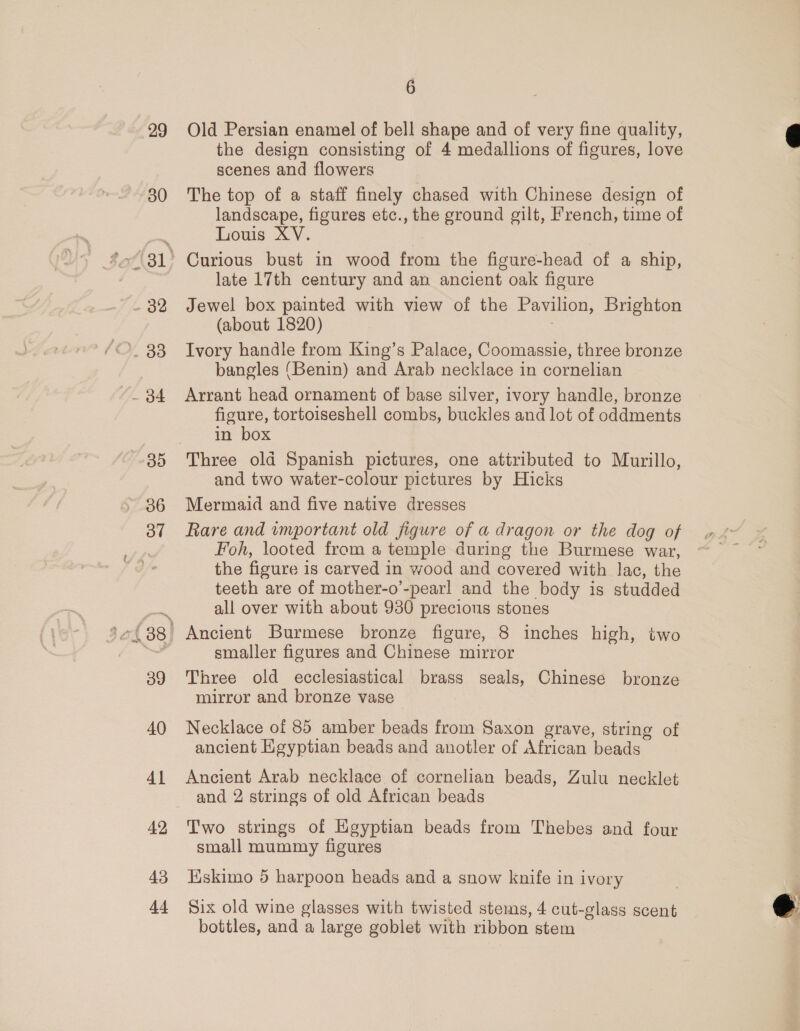 6
29 Old Persian enamel of bell shape and of very fine quality,
the design consisting of 4 medallions of figures, love
scenes and flowers
30 The top of a staff finely chased with Chinese design of
landscape, figures etc., the ground gilt, French, time of
Louis XV.
31 Curious bust in wood from the figure-head of a ship,
late 17th century and an ancient oak figure
32 Jewel box painted with view of the Pavilion, Brighton
(about 1820)
33 Ivory handle from King's Palace, Coomassie, three bronze
bangles (Benin) and Arab necklace in cornelian
34 Arrant head ornament of base silver, ivory handle, bronze
figure, tortoiseshell combs, buckles and lot of oddments
in box
35 Three old Spanish pictures, one attributed to Murillo,
and two water-colour pictures by Hicks
36 Mermaid and five native dresses
37 Rare and important old figure of a dragon or the dog of
Foh, looted from a temple during the Burmese war,
the figure is carved in wood and covered with lac, the
teeth are of mother-o'-pearl and the body is studded
all over with about 930 precious stones
38 Ancient Burmese bronze figure, 8 inches high, two
smaller figures and Chinese mirror
39 Three old ecclesiastical brass seals, Chinese bronze
mirror and bronze vase
40 Necklace of 85 amber beads from Saxon grave, string of
ancient Egyptian beads and anotler of African beads
41 Ancient Arab necklace of cornelian beads, Zulu necklet
and 2 strings of old African beads
42 Two strings of Egyptian beads from Thebes and four
small mummy figures
43 Eskimo 5 harpoon heads and a snow knife in ivory
44 Six old wine glasses with twisted stems, 4 cut-glass scent
bottles, and a large goblet with ribbon stem